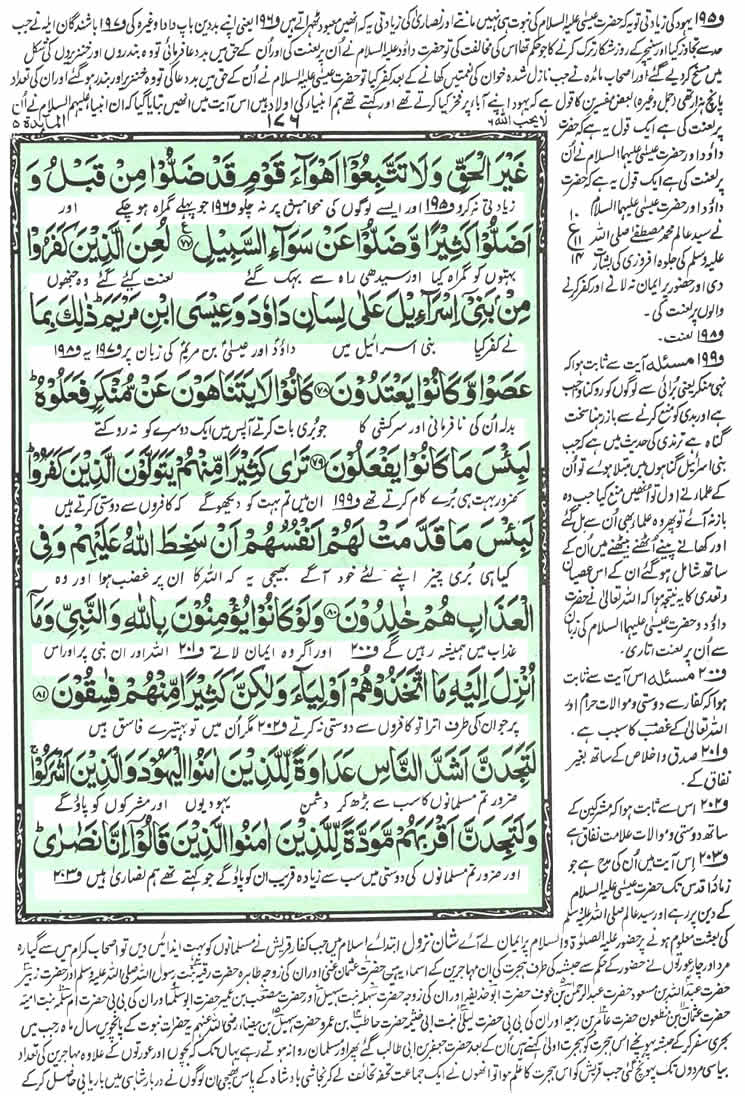 و۱۹۵ یہود کی زیادتی تو یہ کہ حضرت عیسیٰ علیہ السلام کی نبوت ہی نہیں مانتے اور نصاریٰ کی زیادتی یہ کہ انھیں معبود ٹھہراتے ہیں و۱۹۶ یعنی اپنے بددین باپ دادا وغیرہ کی و۱۹۷ باشندگان ایلہ نے جب
حد سے تجاوز کیا اور سنیچر کے روز شکار ترک کرنے کا جو حکم تھا اس کی مخالفت کی تو حضرت داؤد علیہ السلام نے اُن پر لعنت کی اور اُن کے حق میں بددعا فرمائی تو وہ بندروں اور خنزیروں کی شکل
میں مسخ کردیے گئے اور اصحاب مائدہ نے جب نازل شدہ خوان کی نعمتیں کھانے کے بعد کفر کیا تو حضرت عیسیٰ علیہ السلام نے اُن کے حق میں بددعا کی تو وہ خنزیر اور بندر ہوگئے اور ان کی تعداد
پانچ ہزار تھی (جمل وغیرہ) بعض مفسرین کا قول ہے کہ یہود اپنے آباء پر فخر کیا کرتے تھے اور کہتے تھے ہم انبیاء کی اولاد ہیں اس آیت میں انھیں بتایا گیا کہ ان انبیاء علیہم السلام نے اُن
لایحب اللہ ۶
۱۷۶
المائدۃ ۵
پر لعنت کی ہے ایک قول یہ ہے کہ حضرت
داؤد اور حضرت عیسیٰ علیہما السلام نے اُن
پر لعنت کی ہے ایک قول یہ ہے کہ حضرت
داؤد اور حضرت عیسیٰ علیہما السلام
نے سید عالم محمد مصطفےٰ صلی اللہ
علیہ وسلم کی جلوہ افروزی کی بشارت
دی اور حضور پر ایمان نہ لانے اور کفر کرنے
والوں پر لعنت کی۔
و۱۹۸ لعنت۔
و۱۹۹ مسئلہ آیت سے ثابت ہوا کہ
نہی منکر یعنی بُرائی سے لوگوں کو روکنا واجب
ہے اور بدی کو منع کرنے سے باز رہنا سخت
گناہ ہے ترمذی کی حدیث میں ہے کہ جب
بنی اسرائیل گناہوں میں مبتلا ہوئے تو اُن
کے علما نے اول تو انھیں منع کیا جب وہ
باز نہ آئے تو پھر وہ علما بھی اُن سے مل گئے
اور کھانے پینے اُٹھنے بیٹھنے میں اُن کے
ساتھ شامل ہوگئے اُن کے اس عصیان
و تعدی کا یہ نتیجہ ہوا کہ اللہ تعالیٰ نے حضرت
داؤد و حضرت عیسیٰ علیہما السلام کی زبان
سے اُن پر لعنت اتاری۔
و۲۰۰ مسئلہ اس آیت سے ثابت
ہوا کہ کفار سے دوستی و موالات حرام اور
اللہ تعالیٰ کے غضب کا سبب ہے۔
و۲۰۱ صدق و اخلاص کے ساتھ بغیر
نفاق کے۔
و۲۰۲ اس سے ثابت ہوا کہ مشرکین کے
ساتھ دوستی و موالات علامت نفاق ہے
و۲۰۳ اِس آیت میں اُن کی مدح ہے جو
زمانۂ اقدس تک حضرت عیسیٰ علیہ السلام
کے دین پر رہے اور سید عالم صلی اللہ علیہ وسلم
غَيْرَ الْحَقِّ وَلَا تَتَّبِعُوْۤا اَهْوَآءَ قَوْمٍ قَدْ ضَلُّوْا مِنْ قَبْلُ وَ
زیادتی نہ کرو و۱۹۵ اور ایسے لوگوں کی خواہش پر نہ چلو و۱۹۶ جو پہلے گمراہ ہوچکے اور
اَضَلُّوْا كَثِيْرًا وَّ ضَلُّوْا عَنْ سَوَآءِ السَّبِيْلِ ﴿۷۷﴾ لُعِنَ الَّذِيْنَ كَفَرُوْا
بہتوں کو گمراہ کیا اور سیدھی راہ سے بہک گئے لعنت کیے گئے وہ جنھوں
مِنْۢ بَنِيْۤ اِسْرَآءِيْلَ عَلٰى لِسَانِ دَاوٗدَ وَعِيْسَى ابْنِ مَرْيَمَ ؕ ذٰلِكَ بِمَا
نے کفر کیا بنی اسرائیل میں داؤد اور عیسیٰ بن مریم کی زبان پر و۱۹۷ یہ و۱۹۸
عَصَوْا وَّكَانُوْا يَعْتَدُوْنَ ﴿۷۸﴾ كَانُوْا لَا يَتَنَاهَوْنَ عَنْ مُّنْكَرٍ فَعَلُوْهُ ؕ
بدلہ اُن کی نافرمانی اور سرکشی کا جو بُری بات کرتے آپس میں ایک دوسرے کو نہ روکتے
لَبِئْسَ مَا كَانُوْا يَفْعَلُوْنَ ﴿۷۹﴾ تَرٰى كَثِيْرًا مِّنْهُمْ يَتَوَلَّوْنَ الَّذِيْنَ كَفَرُوْا ؕ
ضرور بہت ہی بُرے کام کرتے تھے و۱۹۹ ان میں تم بہت کو دیکھوگے کہ کافروں سے دوستی کرتے ہیں
لَبِئْسَ مَا قَدَّمَتْ لَهُمْ اَنْفُسُهُمْ اَنْ سَخِطَ اللّٰهُ عَلَيْهِمْ وَفِي
کیا ہی بُری چیز اپنے لئے خود آگے بھیجی یہ کہ اللہ کا ان پر غضب ہوا اور وہ
الْعَذَابِ هُمْ خٰلِدُوْنَ ﴿۸۰﴾ وَلَوْ كَانُوْا يُؤْمِنُوْنَ بِاللّٰهِ وَالنَّبِيِّ وَمَاۤ
عذاب میں ہمیشہ رہیں گے و۲۰۰ اور اگر وہ ایمان لاتے و۲۰۱ اللہ اور ان نبی پر اور اس
اُنْزِلَ اِلَيْهِ مَا اتَّخَذُوْهُمْ اَوْلِيَآءَ وَلٰكِنَّ كَثِيْرًا مِّنْهُمْ فٰسِقُوْنَ ﴿۸۱﴾
پر جو ان کی طرف اترا تو کافروں سے دوستی نہ کرتے و۲۰۲ مگر اُن میں تو بہتیرے فاسق ہیں
لَتَجِدَنَّ اَشَدَّ النَّاسِ عَدَاوَةً لِّلَّذِيْنَ اٰمَنُوا الْيَهُوْدَ وَالَّذِيْنَ اَشْرَكُوْا ۚ
ضرور تم مسلمانوں کا سب سے بڑھ کر دشمن یہودیوں اور مشرکوں کو پاؤگے
وَلَتَجِدَنَّ اَقْرَبَهُمْ مَّوَدَّةً لِّلَّذِيْنَ اٰمَنُوا الَّذِيْنَ قَالُوْۤا اِنَّا نَصٰرٰى ؕ
اور ضرور تم مسلمانوں کی دوستی میں سب سے زیادہ قریب ان کو پاؤگے جو کہتے تھے ہم نصاریٰ ہیں و۲۰۳
کی بعثت معلوم ہونے پر حضور علیہ الصلوٰۃ والسلام پر ایمان لے آئے شان نزول ابتدائے اسلام میں جب کفار قریش نے مسلمانوں کو بہت ایذائیں دیں تو اصحاب کرام میں سے گیارہ
مرد اور چار عورتوں نے حضور کے حکم سے حبشہ کی طرف ہجرت کی ان مہاجرین کے اسماء یہ ہیں حضرت عثمان غنی اور ان کی زوجہ طاہرہ حضرت رقیہ بنت رسول اللہ صلی اللہ علیہ وسلم اور حضرت زبیر
حضرت عبداللہ بن مسعود حضرت عبدالرحمٰن بن عوف حضرت ابو حذیفہ اور ان کی زوجہ حضرت سہلہ بنت سہیل اور حضرت مصعب بن عمیر حضرت ابوسلمہ اور ان کی بی بی حضرت ام سلمہ بنت امیہ
حضرت عثمان بن مظعون حضرت عامر بن ربیعہ اور ان کی بی بی حضرت لیلیٰ بنت ابی خیثمہ حضرت حاطب بن عمرو حضرت سہیل بن بیضا رضی اللہ عنہم یہ حضرات نبوت کے پانچویں سال ماہ رجب میں
بحری سفر کرکے حبشہ پہونچے اس ہجرت کو ہجرت اولیٰ کہتے ہیں اُن کے بعد حضرت جعفر بن ابی طالب گئے پھر اور مسلمان روانہ ہوتے رہے یہاں تک کہ بچوں اور عورتوں کے علاوہ مہاجرین کی تعداد
بیاسی مردوں تک پہونچ گئی جب قریش کو اس ہجرت کا علم ہوا تو انھوں نے ایک جماعت تحفہ تحائف لے کر نجاشی بادشاہ کے پاس بھیجی ان لوگوں نے دربار شاہی میں باریابی حاصل کرکے